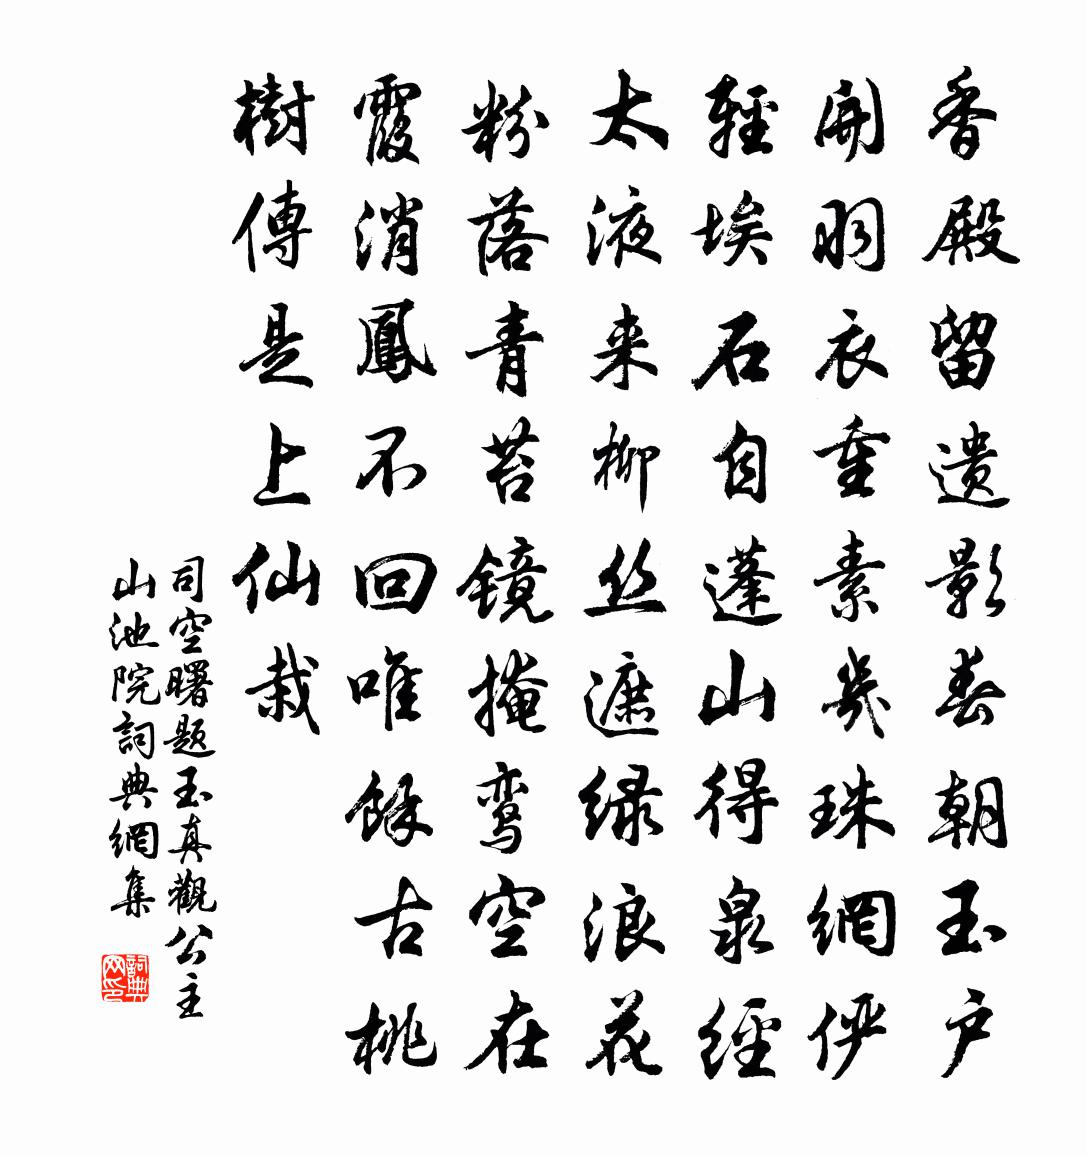 香殿留遗影春朝玉户
開羽衣重素幾珠網俨
輕埃石自蓬山得泉經
太液来柳丝遮绿浪花
粉落青苔镜掩鸾空在
霞消鳳不回唯餘古桃
樹傳是上仙栽
司空曙题玉真觀公主
山池院詞典網集
詞典网印